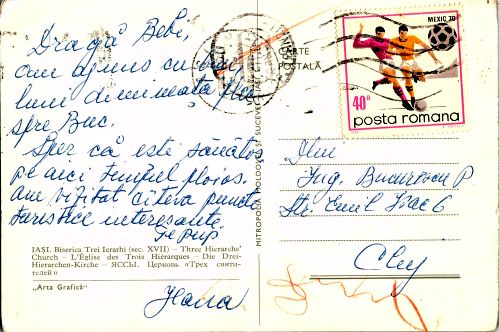 Dragă Bebi,
Am ajuns cu bine
luni dimineața
spre Buc.
Sper că este sănătos
pe aici timpul ploios.
Am vizitat cîteva puncte
turistice interesante.
Te pup
Ileana
IAȘI. Biserica Trei Ierarhi (sec. XVII) — Three Hierarchs'
Church — L'Église des Trois Hiérarques — Die Drei-
Hierarchen-Kirche — ЯССЫ. Церковь «Трех святи-
телей»
„Arta Grafică"
MITROPOLIA MOLDOVEI ȘI SUCEVEI - IAȘI
CARTE
POSTALĂ
MEXIC 70
40B
posta romana
Dlui
Ing. Bucurescu P
Str. Emil Isac 6
Cluj